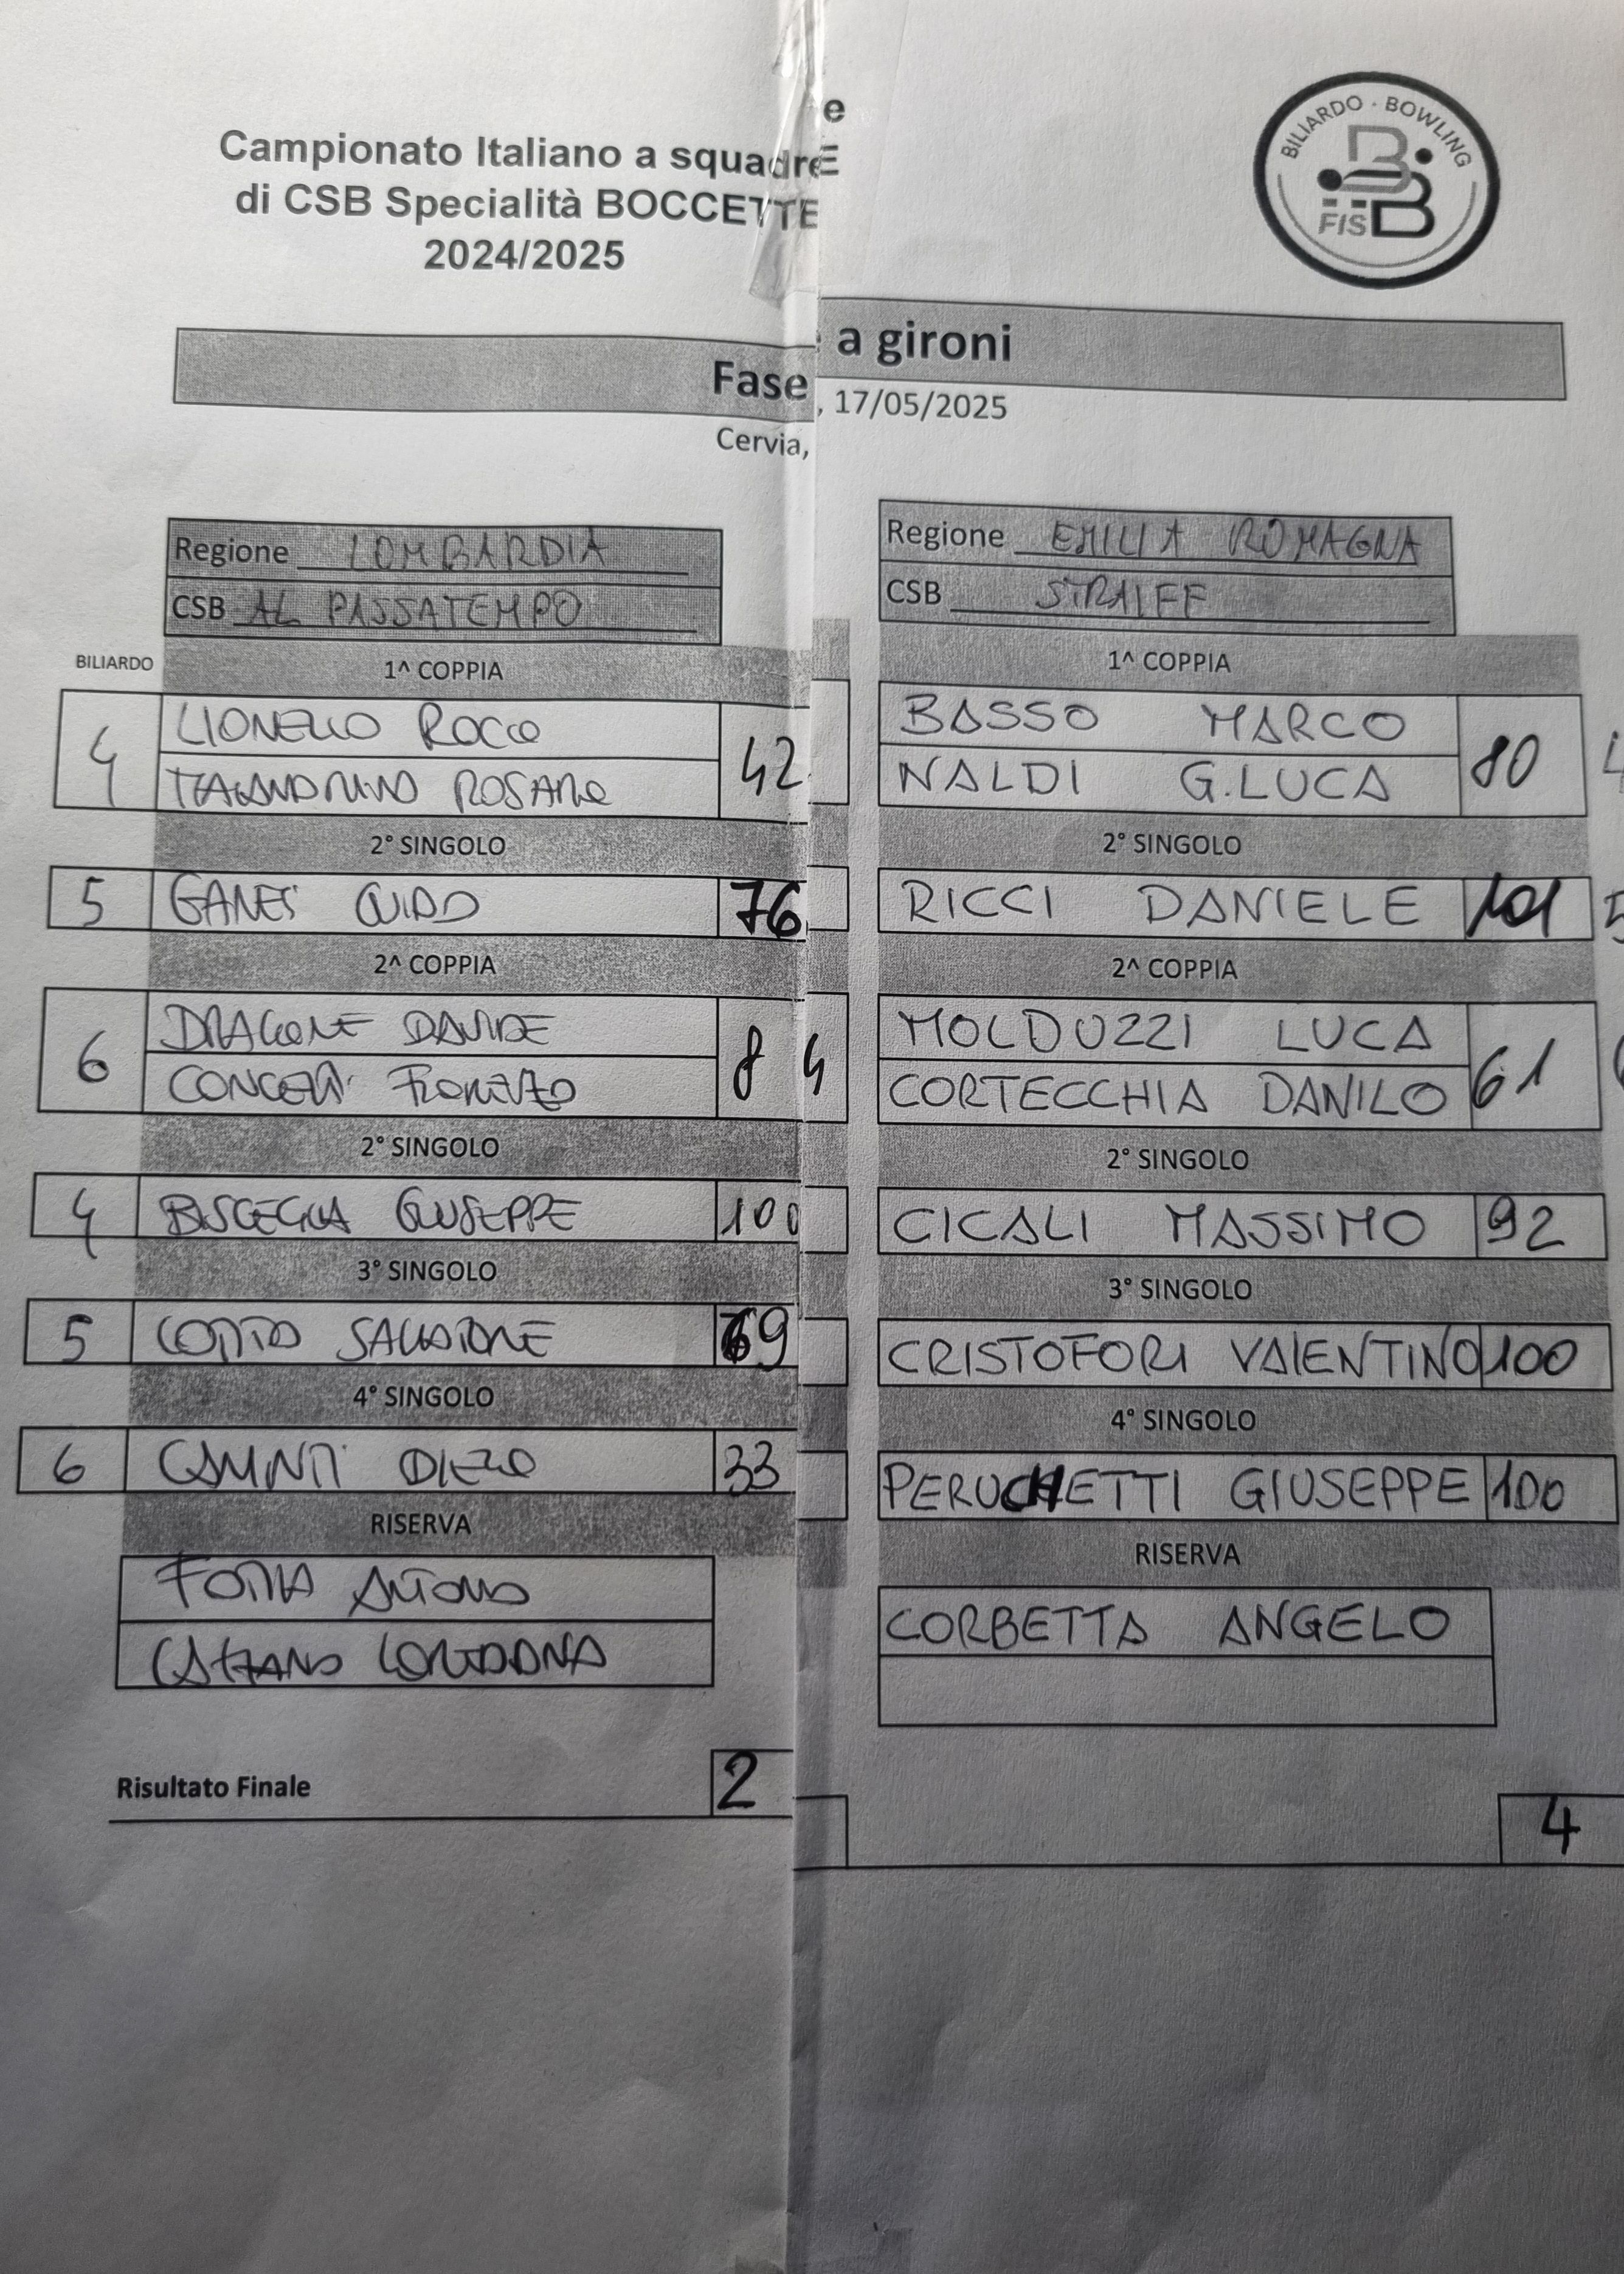 e
Campionato Italiano a squadre E
di CSB Specialità BOCCETTE
2024/2025
BILIARDO · BOWLING
FISBB
Fase a gironi
Cervia, , 17/05/2025
Regione LOMBARDIA
CSB AL PASSATEMPO
Regione EMILIA ROMAGNA
CSB STRAIFF
BILIARDO
1^ COPPIA 1^ COPPIA
4 LIONELLO ROCCO 42 BASSO MARCO 80
ROSARIO NALDI G.LUCA
2° SINGOLO 2° SINGOLO
5 76 RICCI DANIELE 101 5
2^ COPPIA 2^ COPPIA
6 DRAGONE DAVIDE 8 4 MOLDUZZI LUCA 61
FIORENZO CORTECCHIA DANILO
2° SINGOLO 2° SINGOLO
4 BISCEGLIA GIUSEPPE 100 CICALI MASSIMO 92
3° SINGOLO 3° SINGOLO
5 SALVATORE 69 CRISTOFORI VALENTINO 100
4° SINGOLO 4° SINGOLO
6 33 PERUCHETTI GIUSEPPE 100
RISERVA RISERVA
ANTONIO CORBETTA ANGELO
LOREDANA
Risultato Finale 2 4